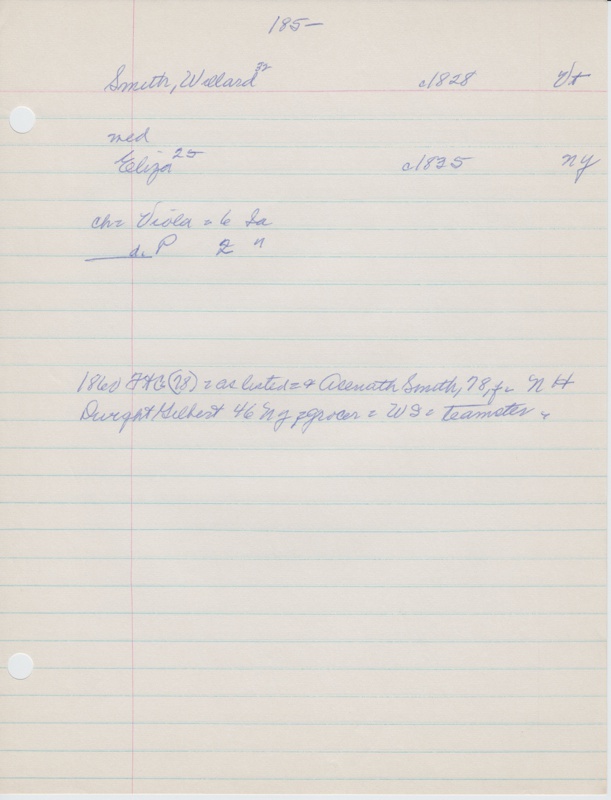 185-
Smith, Willard 32 c1828 Vt
med
Eliza 25 c1835 NY
ch = Viola = 6 Ia
d. P 2 "
1860 (78) = as listed = + Asenath Smith, 78, f = N H
Dwight Gilbert 46 NY = grocer = WS = Teamster